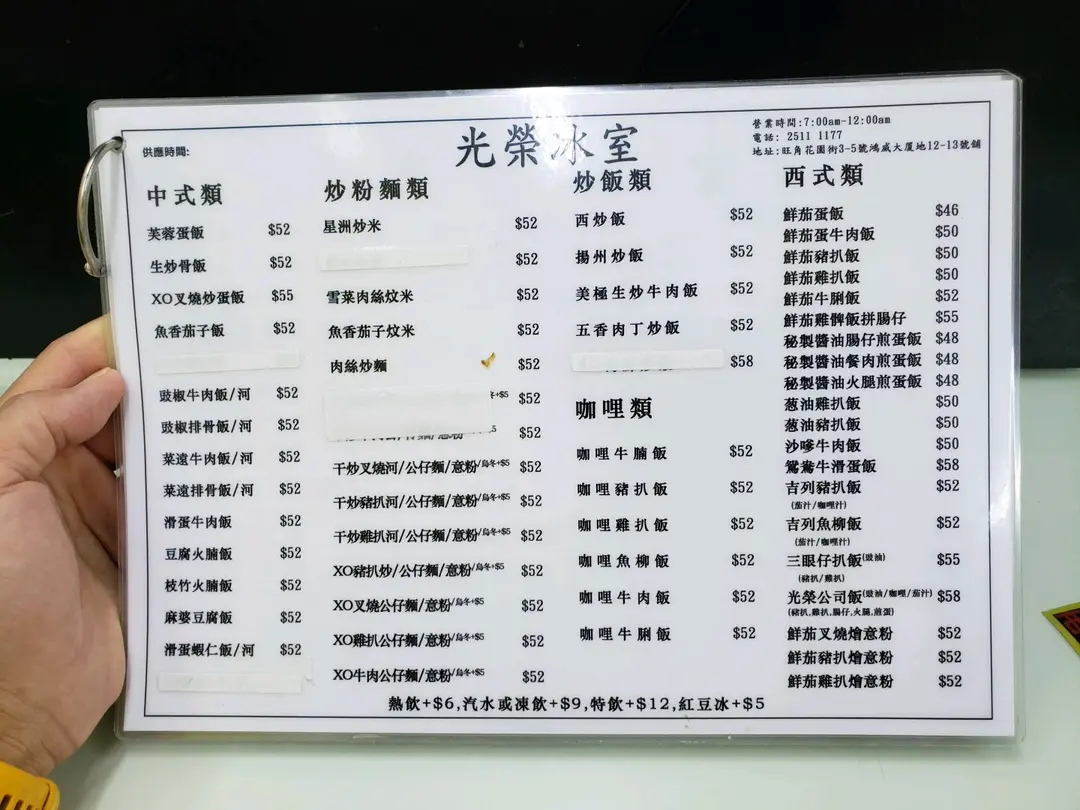 光榮冰室
營業時間:7:00am-12:00am
電話: 2511 1177
地址:旺角花園街3-5號鴻威大廈地12-13號舖
供應時間:
中式類
芙蓉蛋飯 $52
生炒骨飯 $52
XO叉燒炒蛋飯 $55
魚香茄子飯 $52
豉椒牛肉飯/河 $52
豉椒排骨飯/河 $52
菜遠牛肉飯/河 $52
菜遠排骨飯/河 $52
滑蛋牛肉飯 $52
豆腐火腩飯 $52
枝竹火腩飯 $52
麻婆豆腐飯 $52
滑蛋蝦仁飯/河 $52
炒粉麵類
星洲炒米 $52
$52
雪菜肉絲炆米 $52
魚香茄子炆米 $52
肉絲炒麵 $52
冬+$5 $52
$52
干炒叉燒河/公仔麵/意粉/烏冬+$5 $52
干炒豬扒河/公仔麵/意粉/烏冬+$5 $52
干炒雞扒河/公仔麵/意粉/烏冬+$5 $52
XO豬扒炒/公仔麵/意粉/烏冬+$5 $52
XO叉燒公仔麵/意粉/烏冬+$5 $52
XO雞扒公仔麵/意粉/烏冬+$5 $52
XO牛肉公仔麵/意粉/烏冬+$5 $52
炒飯類
西炒飯 $52
揚州炒飯 $52
美極生炒牛肉飯 $52
五香肉丁炒飯 $52
$58
咖哩類
咖哩牛腩飯 $52
咖哩豬扒飯 $52
咖哩雞扒飯 $52
咖哩魚柳飯 $52
咖哩牛肉飯 $52
咖哩牛脷飯 $52
西式類
鮮茄蛋飯 $46
鮮茄蛋牛肉飯 $50
鮮茄豬扒飯 $50
鮮茄雞扒飯 $50
鮮茄牛脷飯 $52
鮮茄雞髀飯拼腸仔 $55
秘製醬油腸仔煎蛋飯 $48
秘製醬油餐肉煎蛋飯 $48
秘製醬油火腿煎蛋飯 $48
葱油雞扒飯 $50
葱油豬扒飯 $50
沙嗲牛肉飯 $50
鴛鴦牛滑蛋飯 $58
吉列豬扒飯 $52
(茄汁/咖哩汁)
吉列魚柳飯 $52
(茄汁/咖哩汁)
三眼仔扒飯(豉油) $55
(豬扒/雞扒)
光榮公司飯(豉油/咖哩/茄汁) $58
(豬扒,雞扒,腸仔,火腿,煎蛋)
鮮茄叉燒燴意粉 $52
鮮茄豬扒燴意粉 $52
鮮茄雞扒燴意粉 $52
熱飲+$6,汽水或凍飲+$9,特飲+$12,紅豆冰+$5